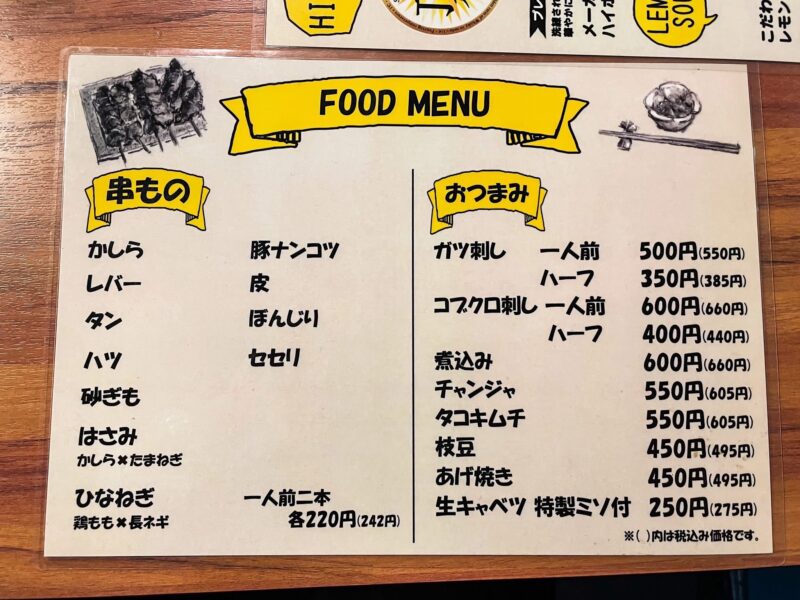 HI
プレ
洗練され
華やかに
メーカ
ハイボ
LEM
SOU
こだわ
レモン
FOOD MENU
串もの
かしら 豚ナンコツ
レバー 皮
タン ぼんじり
ハツ セセリ
砂ぎも
はさみ
かしら×たまねぎ
ひなねぎ 一人前二本
鶏もも×長ネギ 各220円(242円)
おつまみ
ガツ刺し 一人前 500円(550円)
ハーフ 350円(385円)
コブクロ刺し 一人前 600円(660円)
ハーフ 400円(440円)
煮込み 600円(660円)
チャンジャ 550円(605円)
タコキムチ 550円(605円)
枝豆 450円(495円)
あげ焼き 450円(495円)
生キャベツ 特製ミソ付 250円(275円)
※( )内は税込み価格です。